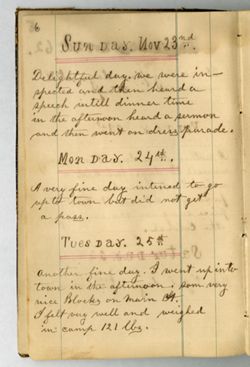 6
Sunday. Nov 23nd.
Delightful day. we were in-
spected and then heard a
speech untill dinner time
in the afternoon heard a sermon
and then went on dress parade.
Monday. 24th.
A very fine day intened to go
up to town but did not get
a pass.
Tuesday. 25th
Another fine day. I went up into
town in the afternoon. som very
nice Blocks on Main St.
I felt very well and weighed
in camp 121 lbs.